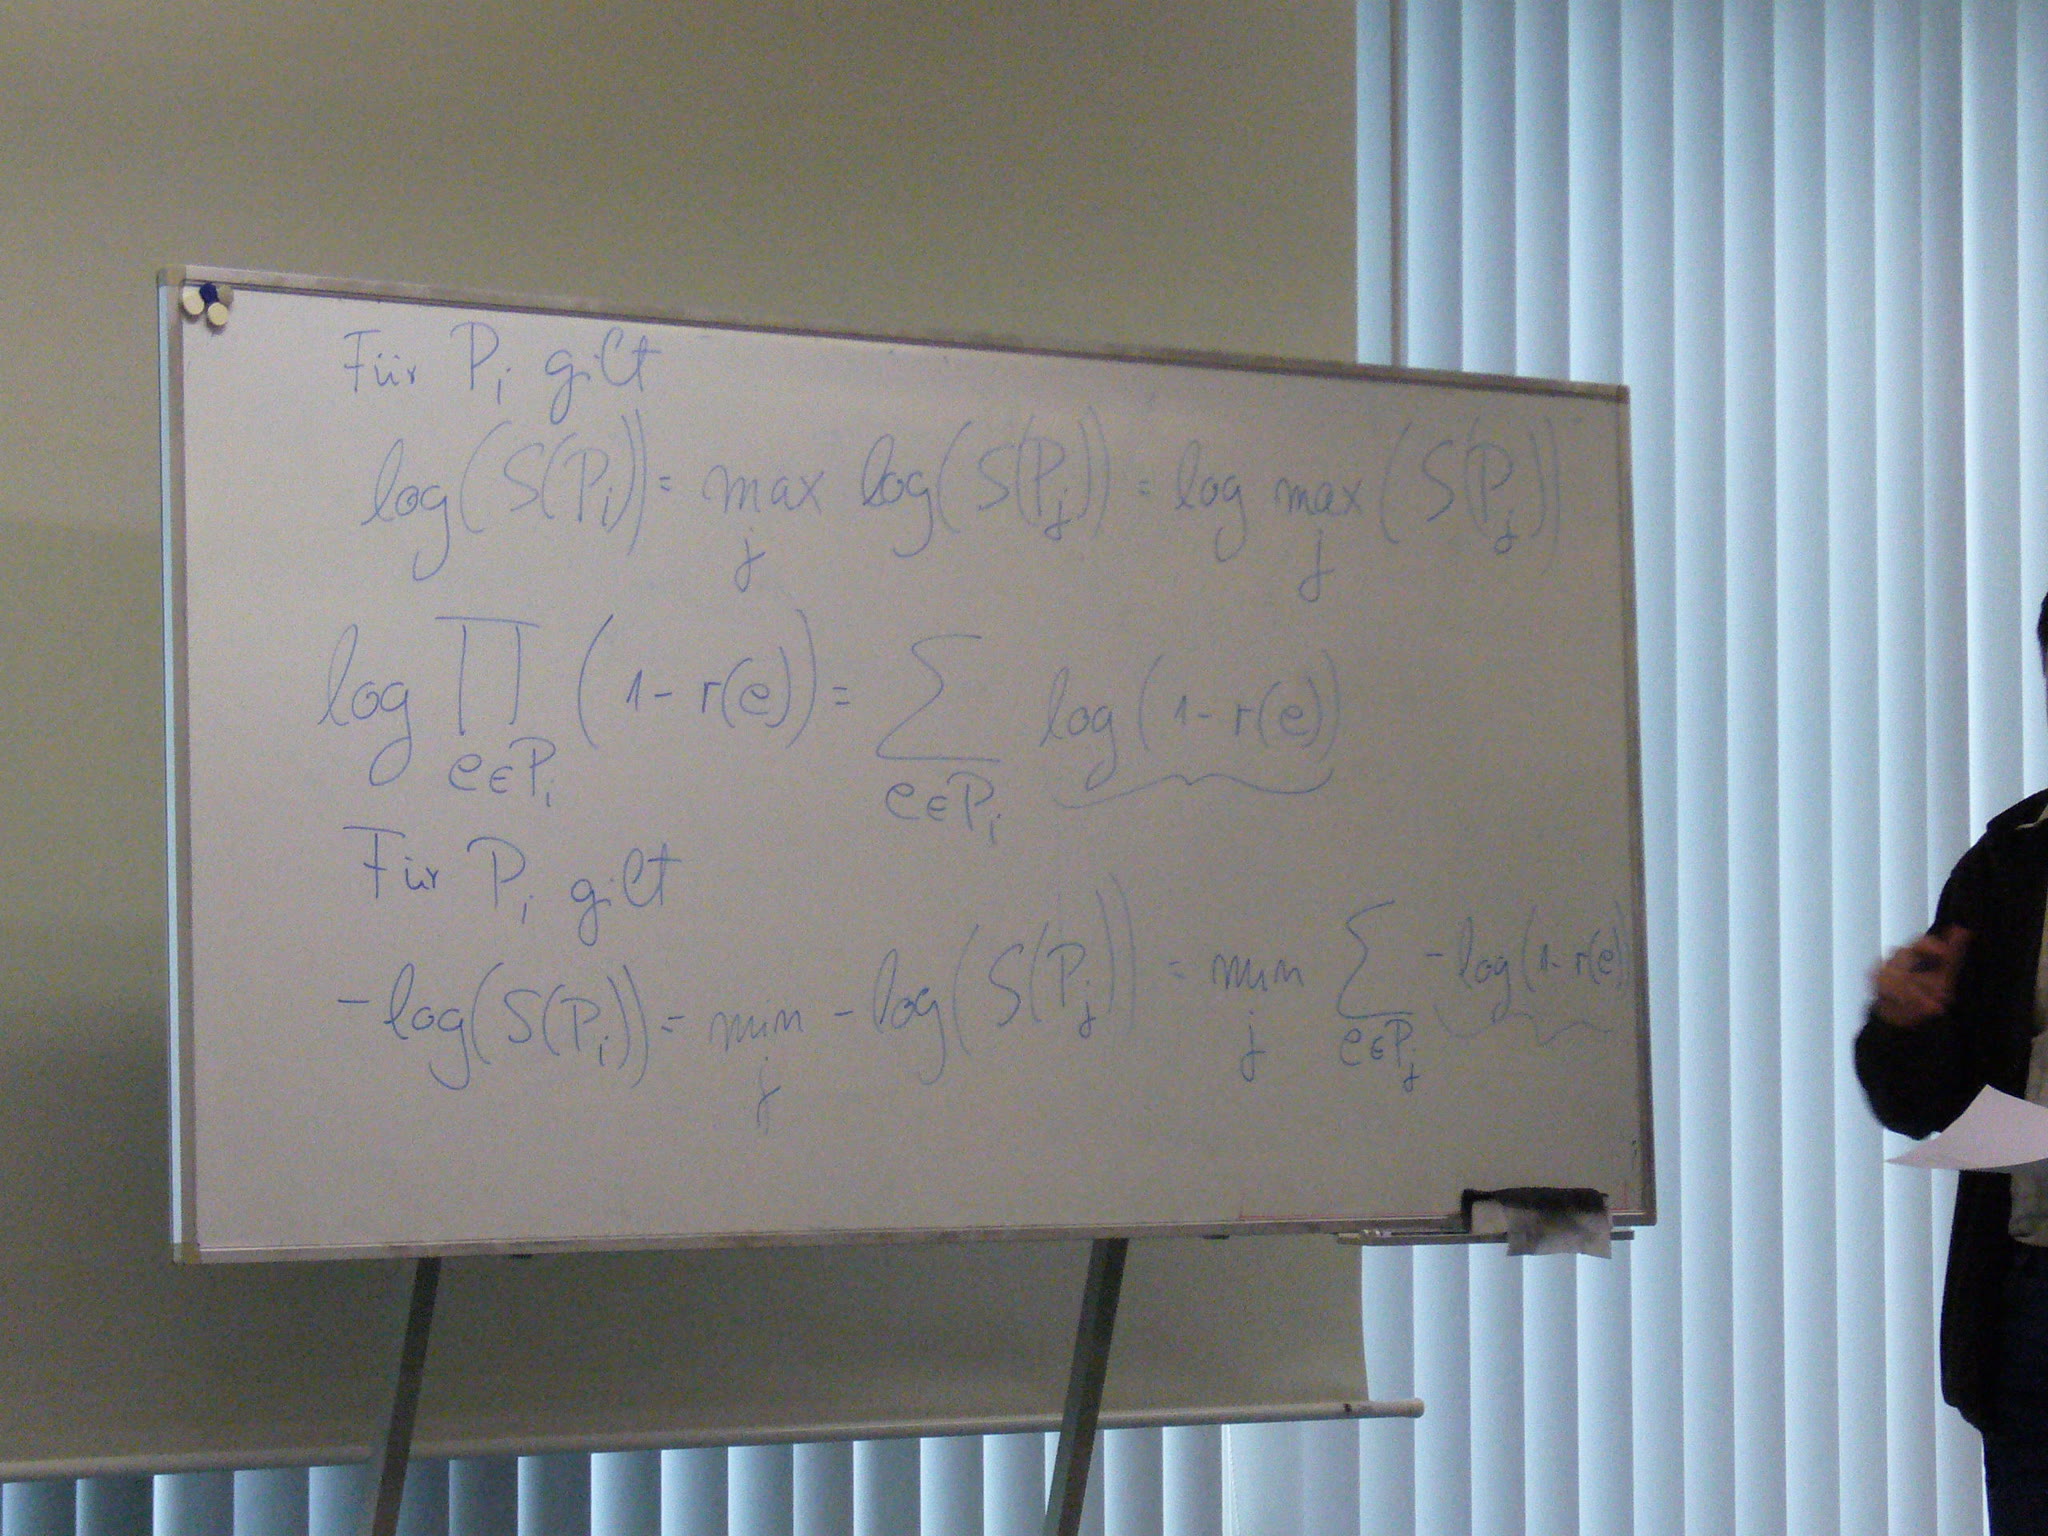 Für P_i gilt
log(S(P_i)) = max_j log(S(P_j)) = log max_j (S(P_j))
log ∏_{e∈P_i} (1 - r(e)) = ∑_{e∈P_i} log(1 - r(e))
Für P_i gilt
-log(S(P_i)) = min_j -log(S(P_j)) = min_j ∑_{e∈P_j} -log(1 - r(e)